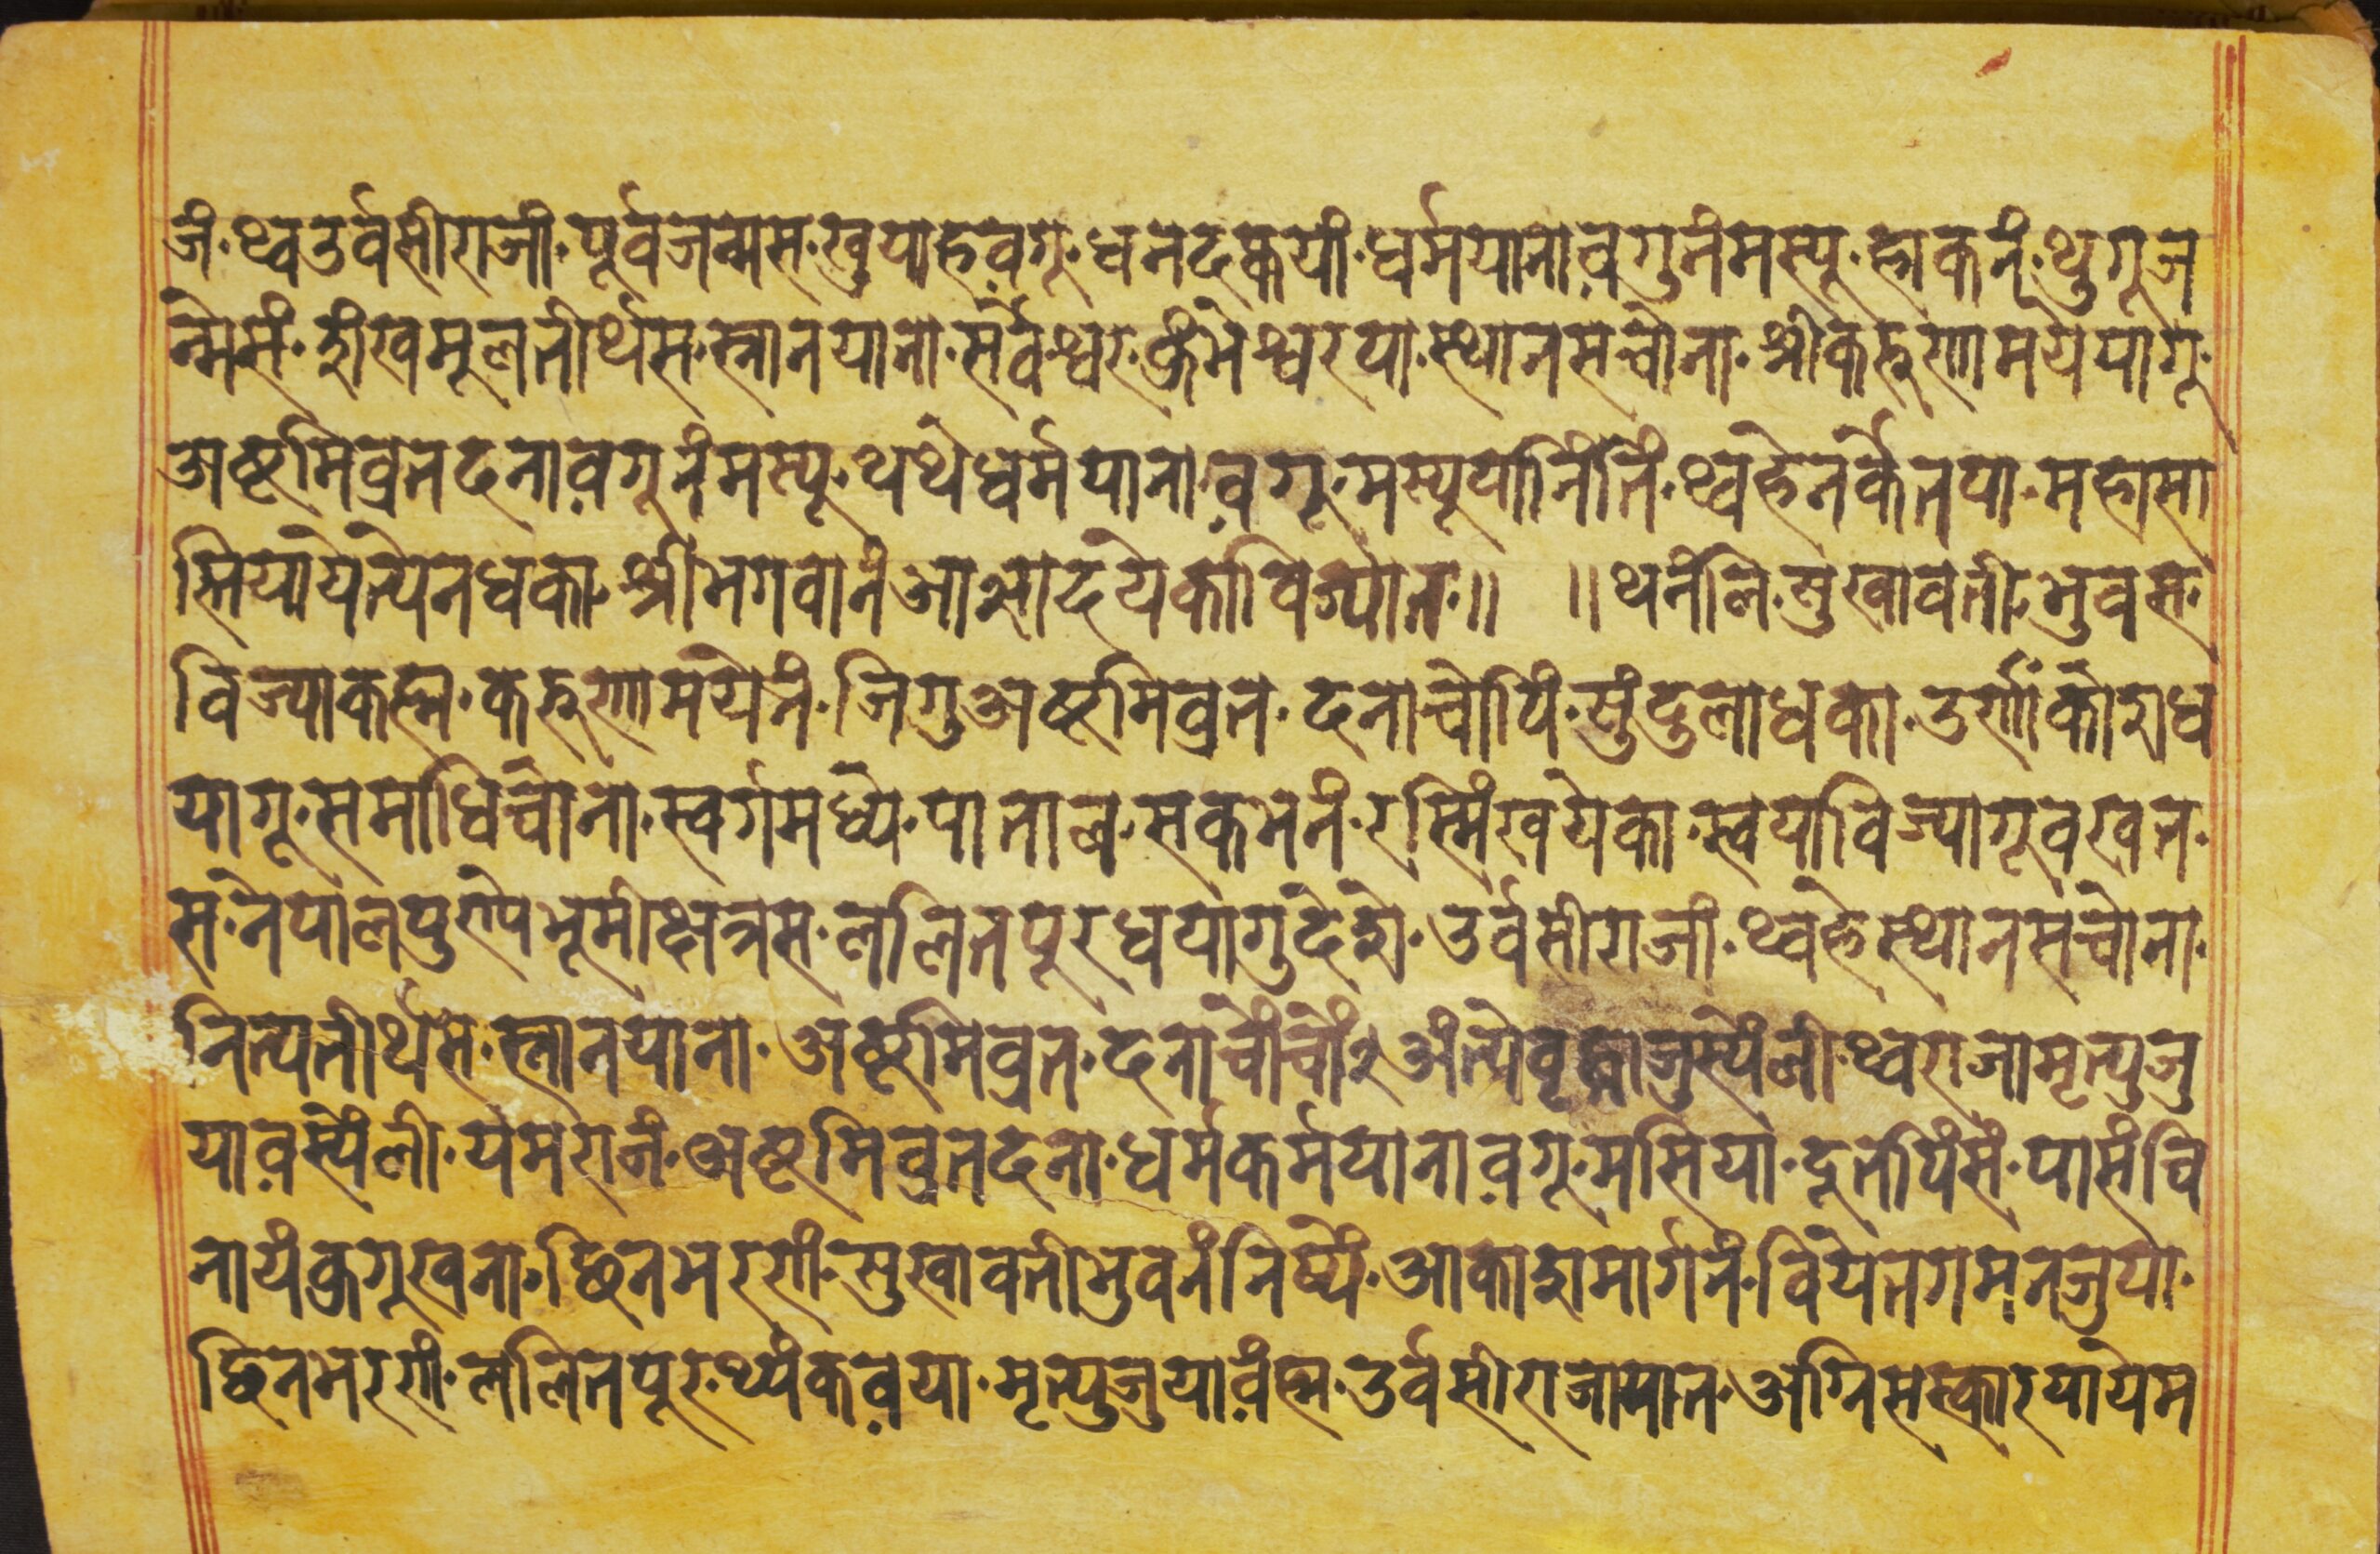 जं·थ्वउर्वसीराजां·पूर्वजन्मस·खुयाहव़गू·धनदक्वयां·धर्मयानाव़गुनंमस्यू·ह्नाकनं·थुगूज
न्मेसं·दुःखमूलतीर्थस·स्नानयाना·सर्वेश्वर·कुंभेश्वरया·स्थानसचोना·श्रीकरुणामययागू·
अष्टमिव्रतदनाव़गूनंमस्यू·थथेधर्मयाना·व़गू·मस्यूयानिंतिं·थ्वहेनर्केतया·महासा
स्तियायेत्येनधका·श्रीभगवानंआज्ञादयेकाविज्यात·॥ ॥थनंलि·सुखावती·भुवस·
विज्याकह्म·करुणामयेनं·जिगुअष्टमिव्रत·दनाचोपिं·सुंदुलाधका·उर्णाकोशध
यागू·समाधिचोना·स्वर्गमध्ये·पाताल·सकभनं·रस्मिंखयेका·स्वयाविज्यागूवखत·
स·नेपालपुण्येभूमीक्षत्रस·ललितपूरधयागुदेशे·उर्वसीराजां·थ्वहेस्थानसंचोना·
नित्यतीर्थसे·स्नानयाना·अष्टमिव्रत·दनाचोंचों२अंत्येवृद्धाजुस्येंली·थ्वराजामृत्युजु
याव़स्येंली·यमराजं·अष्टमिव्रतदना·धर्मकर्मयानाव़गू·मसिया·दूतपिंसं·पासंचि
नायंक्रगूखना·छिनभरसां·सुखावतीभुवनंनिष्यें·आकाशमार्गनं·वियेतगमनजुया·
छिनभरसां·ललितपूर·थ्यंकव़या·मृत्युजुयाव़ंह्म·उर्वसीराजायात·अग्निसस्कारयायेम